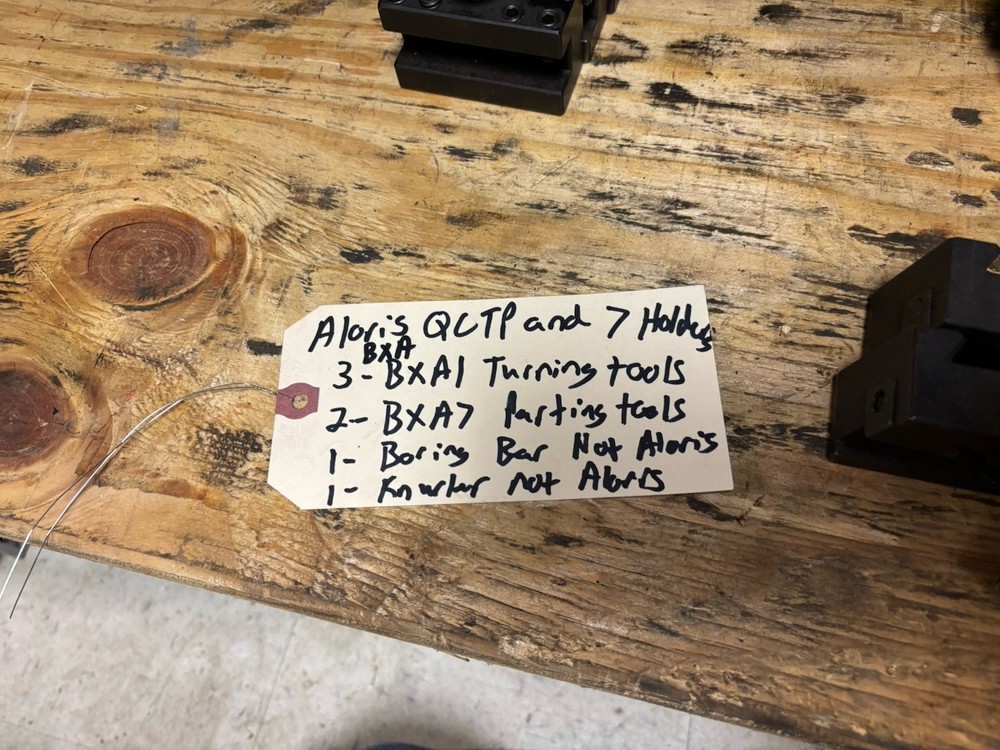 Aloris QCTP and 7 Holders
BXA
3- BXA1 Turning tools
2- BXA7 Parting tools
1- Boring Bar Not Aloris
1- Knurler not Aloris